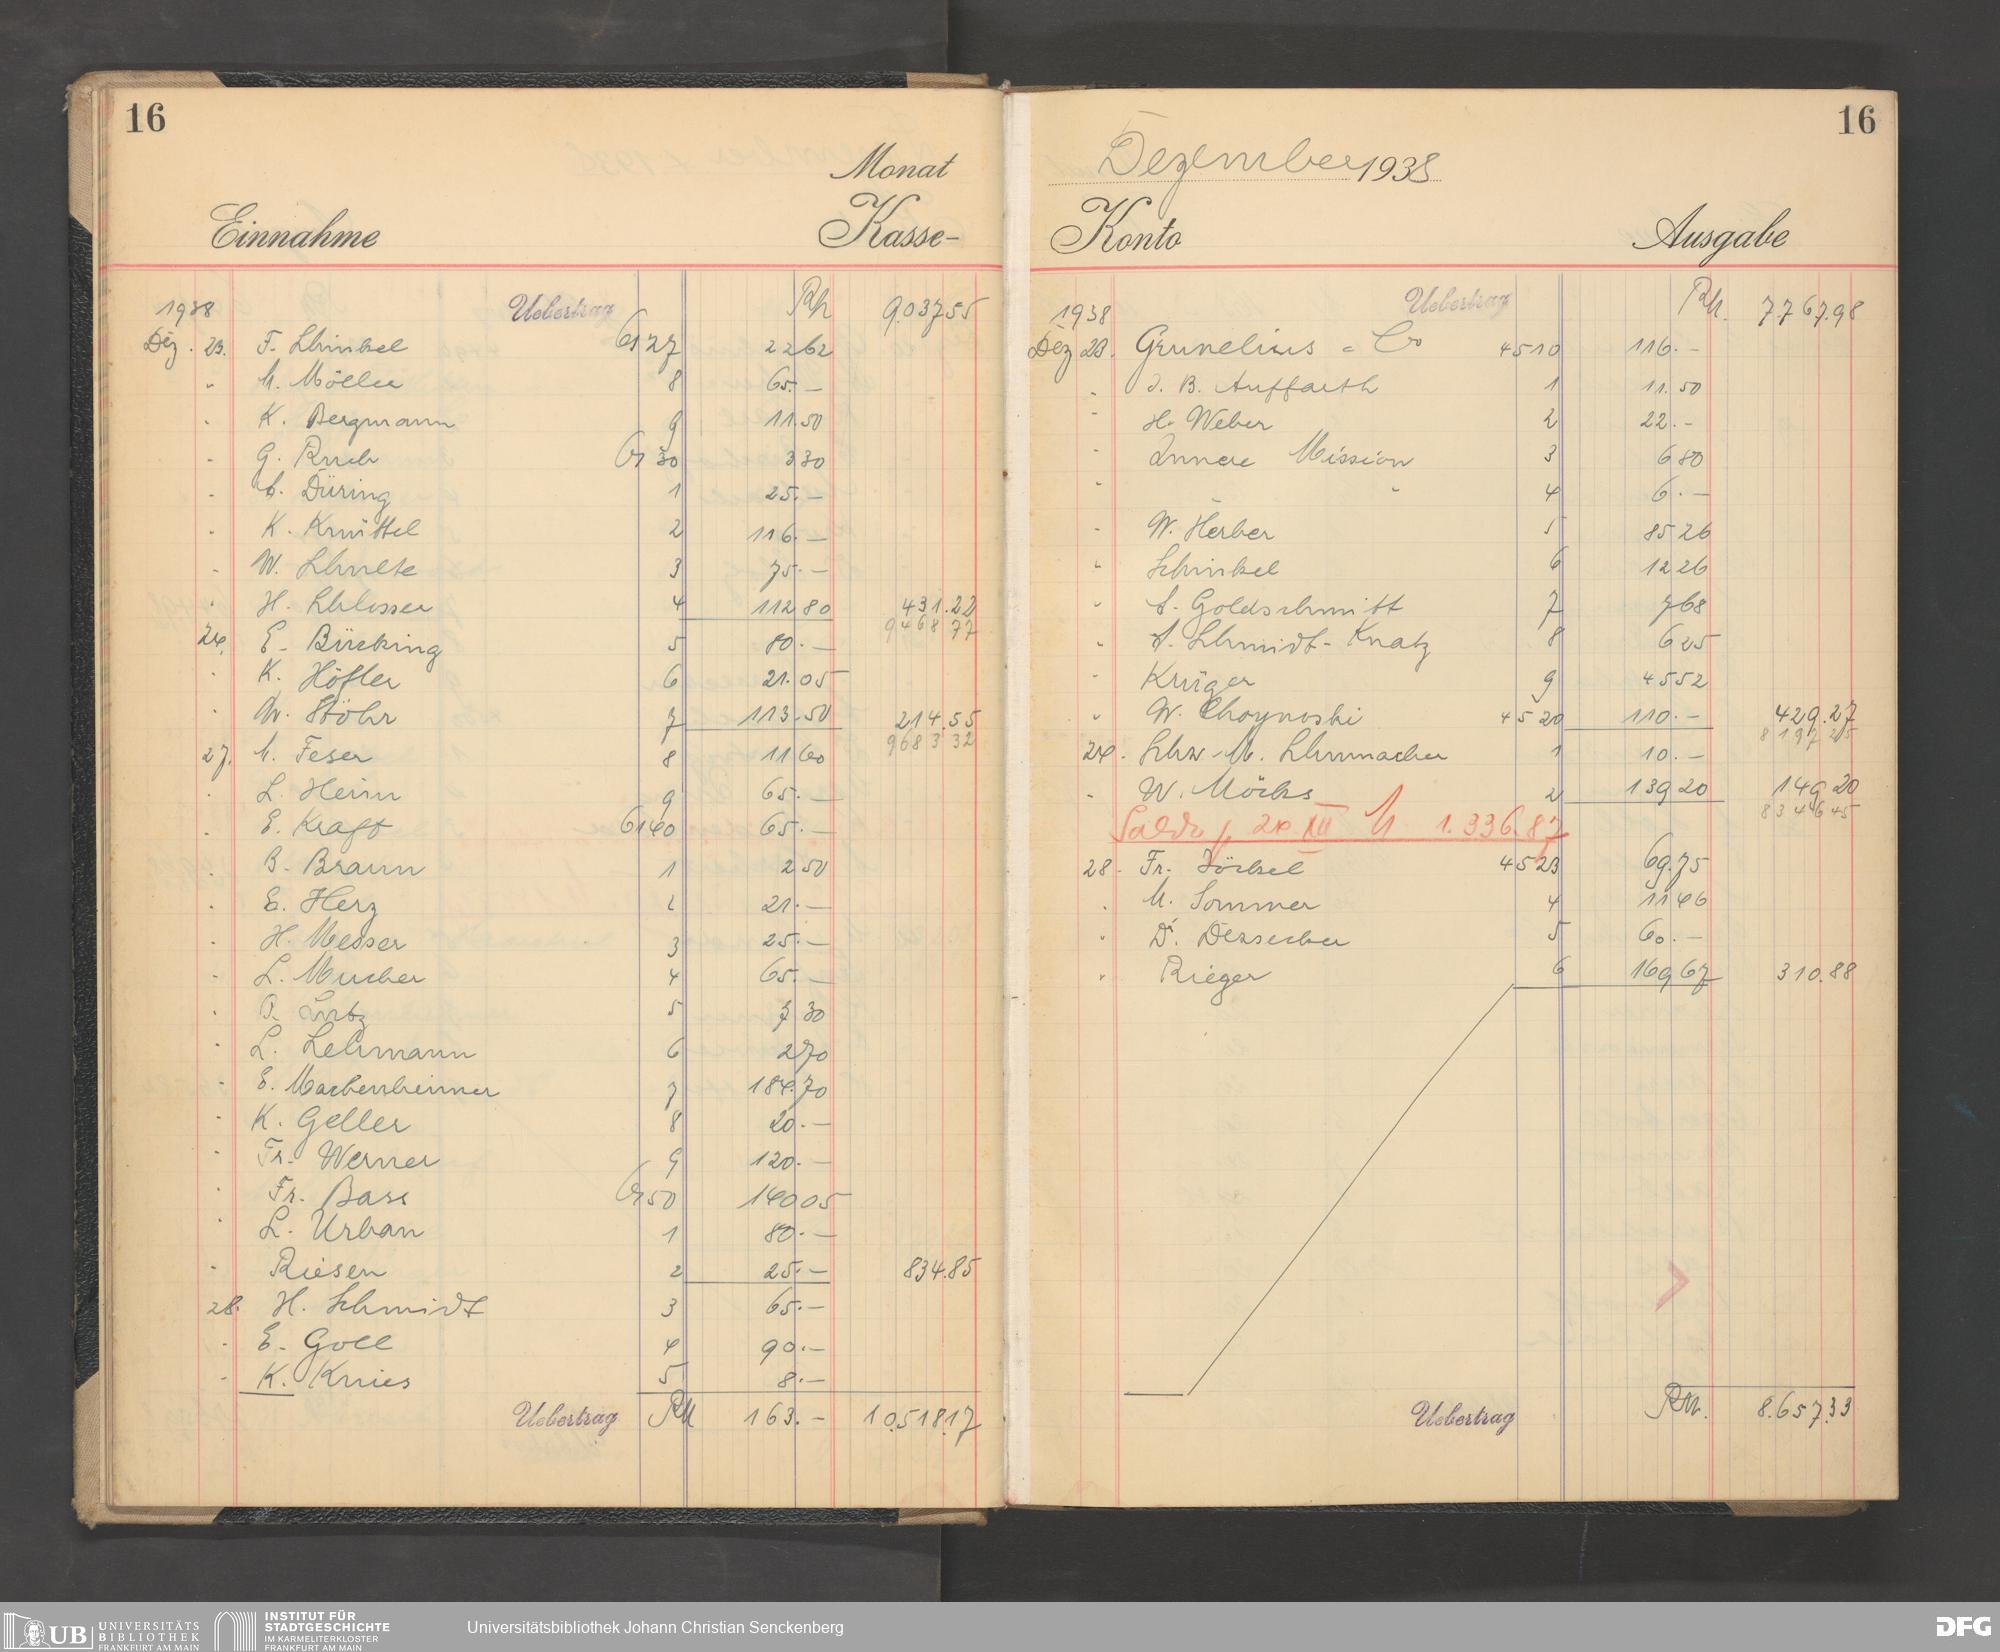 16
Monat
Einnahme Kasse-
1938 Uebertrag RM 9.037.55
Dez. 23. F. Schinkel 6127 22 62
" M. Möller 8 65.—
" K. Bergmann 9 11.50
" G. Ruch 6130 3 30
" C. Düring 1 25.—
" K. Knüttel 2 116.—
" W. Schulte 3 75.—
" H. Schlosser 4 112 80 431.22
9468 77
24. E. Bücking 5 80.—
" K. Höfler 6 21.05
" W. Stöhr 7 113.50 214.55
9683 32
27. M. Feser 8 11 60
" L. Heim 9 65.—
" E. Kraft 6140 65.—
" B. Braun 1 2 50
" E. Herz 2 21.—
" H. Messer 3 25.—
" L. Mucher 4 65.—
" P. Lutz 5 7 30
" L. Lehmann 6 2 70
" E. Marbenheimer 7 184.70
" K. Geller 8 20.—
" Fr. Werner 9 120.—
" Fr. Bass 6150 140 05
" L. Urban 1 80.—
" Riesen 2 25.— 834.85
28. H. Schmidt 3 65.—
" E. Goll 4 90.—
" K. Knies 5 8.—
Uebertrag RM 163.— 10.518.17
16
Dezember 1938
Konto Ausgabe
1938 Uebertrag RM. 7.767.98
Dez 23. Grunelius & Co 4510 116.—
" J. B. Auffarth 1 11.50
" H. Weber 2 22.—
" Innere Mission 3 6 80
" " 4 6.—
" W. Herber 5 85 26
" Schinkel 6 12 26
" S. Goldschmitt 7 7 68
" S. Schmidt-Knatz 8 6 25
" Krüger 9 45 52
" W. Choynoski 4520 110.— 429.27
8197 25
24. Schw. M. Schumacher 1 10.—
" W. Möcks 2 139 20 149 20
8346 45
Saldo p. 24 XII M 1.336.87
28. Fr. Jöckel 4523 69.75
" M. Sommer 4 11 46
" Dr. Derscher 5 60.—
" Rieger 6 169 67 310.88
Uebertrag RM. 8.657.33
UB UNIVERSITÄTS
BIBLIOTHEK
FRANKFURT AM MAIN
INSTITUT FÜR
STADTGESCHICHTE
IM KARMELITERKLOSTER
FRANKFURT AM MAIN
Universitätsbibliothek Johann Christian Senckenberg
DFG